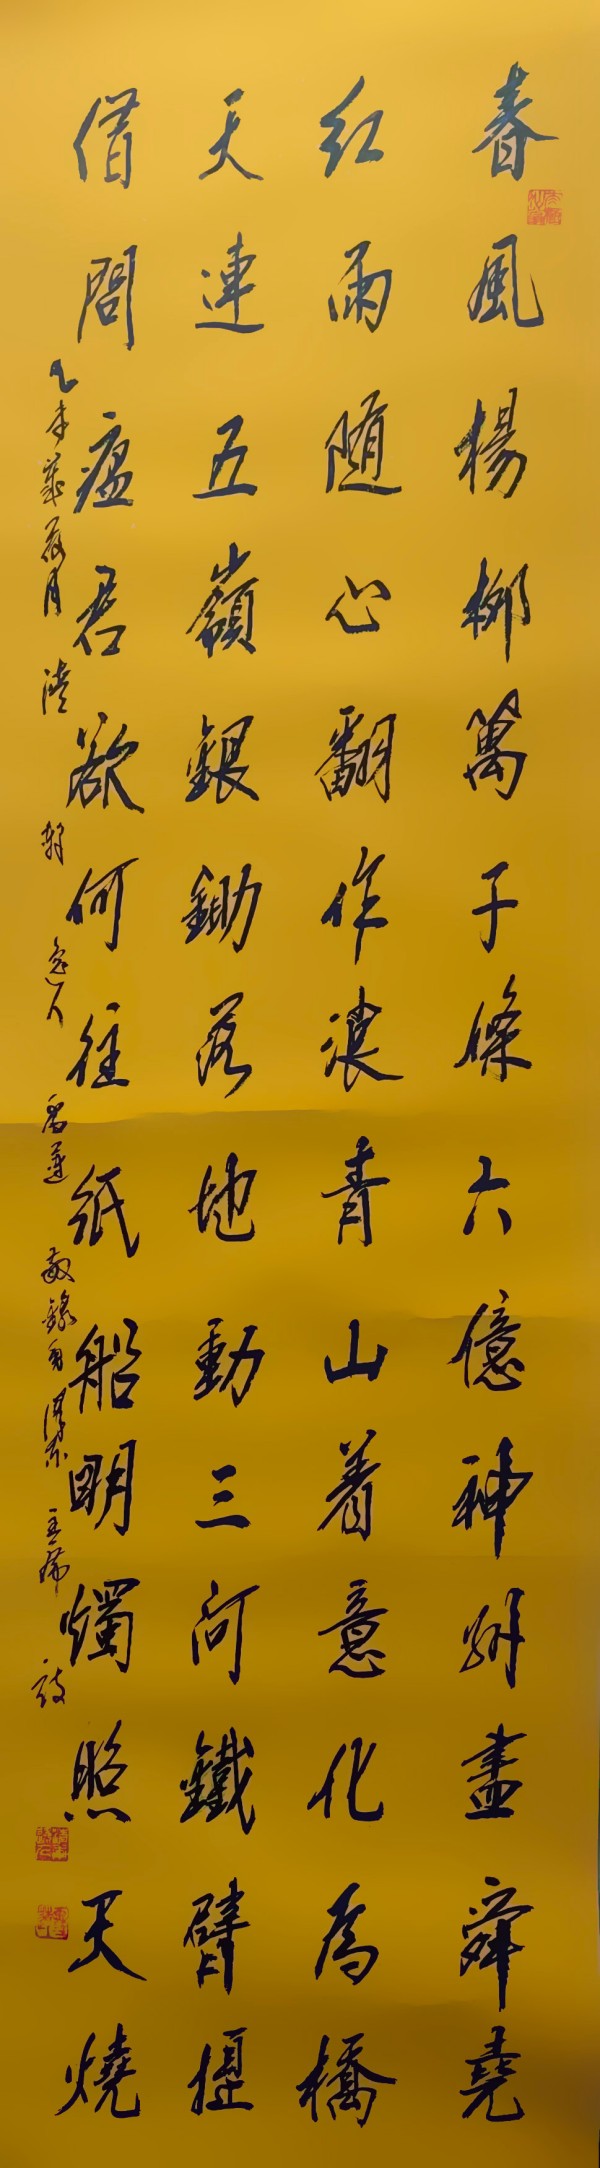 春風楊柳萬千條六億神州盡舜堯
红雨随心翻作浪青山着意化為橋
天連五嶺銀鋤落地動三河鐵臂摇
借問瘟君欲何往纸船明燭照天燒
乙未 月 軒 逸人 敬錄毛澤東 主席 詩